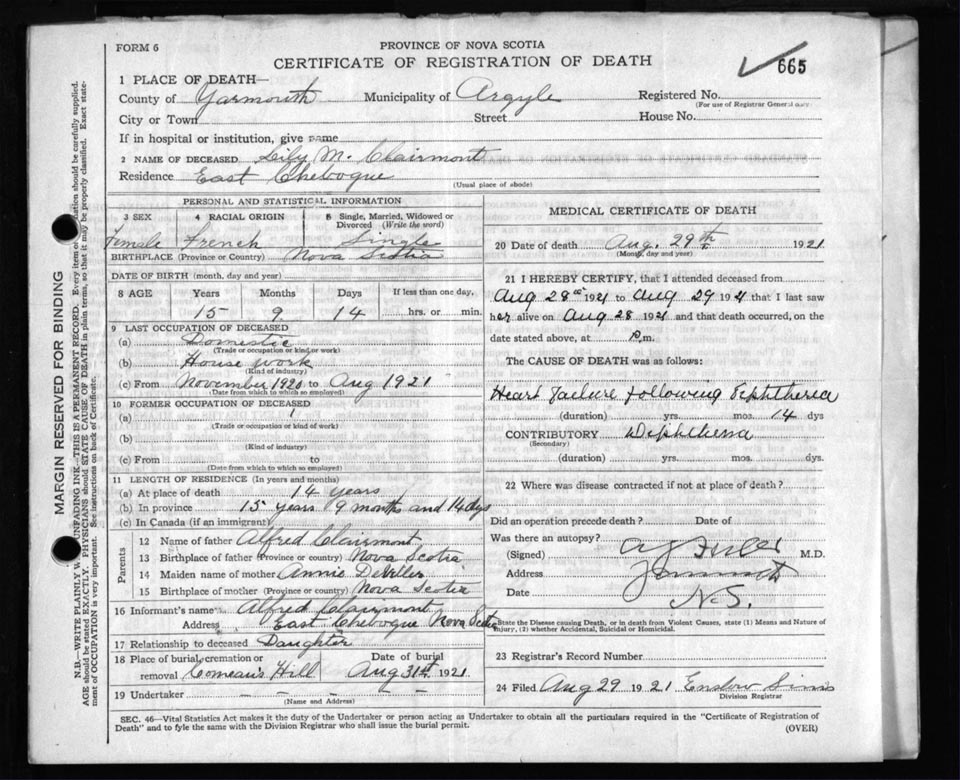 FORM 6
PROVINCE OF NOVA SCOTIA
CERTIFICATE OF REGISTRATION OF DEATH
665
1 PLACE OF DEATH—
County of Yarmouth Municipality of Argyle Registered No.
(For use of Registrar General only)
City or Town Street House No.
If in hospital or institution, give name
2 NAME OF DECEASED Lily M. Clairmont
Residence East Chebogue
(Usual place of abode)
PERSONAL AND STATISTICAL INFORMATION
3 SEX 4 RACIAL ORIGIN 5 Single, Married, Widowed or
Divorced (Write the word)
Female French Single
BIRTHPLACE (Province or Country) Nova Scotia
DATE OF BIRTH (month, day and year)
8 AGE Years Months Days If less than one day,
15 9 14 hrs. or min.
9 LAST OCCUPATION OF DECEASED
(a) Domestic
(Trade or occupation or kind or work)
(b) House work
(Kind of industry)
(c) From November 1920 to Aug 1921
(Date from which to which so employed)
10 FORMER OCCUPATION OF DECEASED
(a)
(Trade or occupation or kind of work)
(b)
(Kind of industry)
(c) From to
(Date from which to which so employed)
11 LENGTH OF RESIDENCE (In years and months)
(a) At place of death 14 years
(b) In province 15 years 9 months and 14 dys
(c) In Canada (if an immigrant)
Parents
12 Name of father Alfred Clairmont
13 Birthplace of father (Province or country) Nova Scotia
14 Maiden name of mother Annie
15 Birthplace of mother (Province or country) Nova Scotia
16 Informant's name Alfred Clairmont
Address East Chebogue Nova Scotia
17 Relationship to deceased Daughter
18 Place of burial, cremation or Date of burial
removal Comeau's Hill Aug 31st. 1921
19 Undertaker – – – – – –
(Name and Address)
MEDICAL CERTIFICATE OF DEATH
20 Date of death Aug. 29th. 1921
(Month, day and year)
21 I HEREBY CERTIFY, that I attended deceased from
Aug 28 1921 to Aug 29 1921 that I last saw
her alive on Aug 28 1921 and that death occurred, on the
date stated above, at P.m.
The CAUSE OF DEATH was as follows:
Heart failure following Diphtheria
(duration) yrs. mos. 14 dys
CONTRIBUTORY Diphtheria
(Secondary)
(duration) yrs. mos. dys.
22 Where was disease contracted if not at place of death?
Did an operation precede death? Date of
Was there an autopsy?
(Signed) M.D.
Address Yarmouth
Date N.S.
State the Disease causing Death, or in death from Violent Causes, state (1) Means and Nature of
Injury, (2) whether Accidental, Suicidal or Homicidal.
23 Registrar's Record Number
24 Filed Aug 29 1921 Enslow Sims
Division Registrar
SEC. 46—Vital Statistics Act makes it the duty of the Undertaker or person acting as Undertaker to obtain all the particulars required in the "Certificate of Registration of
Death" and to fyle the same with the Division Registrar who shall issue the burial permit.
(OVER)
MARGIN RESERVED FOR BINDING
N.B.—WRITE PLAINLY W UNFADING INK—THIS IS A PERMANENT RECORD. Every item of information should be carefully supplied.
AGE should be stated EXACTLY. PHYSICIANS should STATE CAUSE OF DEATH in plain terms, so that it may be properly classified. Exact state-
ment of OCCUPATION is very important. See instructions on back of Certificate.